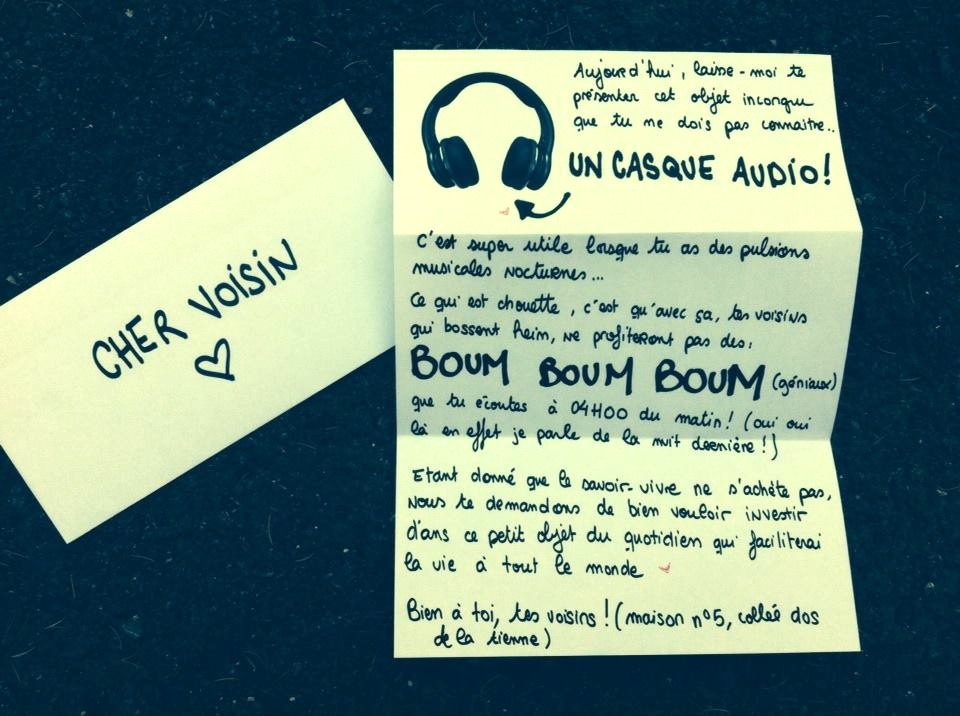 CHER VOISIN
Aujourd'hui, laisse-moi te
présenter cet objet incongru
que tu ne dois pas connaitre..
UN CASQUE AUDIO!
C'est super utile lorsque tu as des pulsions
musicales nocturnes...
Ce qui est chouette, c'est qu'avec ça, tes voisins
qui bossent hein, ne profiteront pas des:
BOUM BOUM BOUM (géniaux)
que tu écoutes à 04H00 du matin! (oui oui
là en effet je parle de la nuit dernière!)
Etant donné que le savoir-vivre ne s'achète pas,
nous te demandons de bien vouloir investir
dans ce petit objet du quotidien qui faciliterai
la vie à tout le monde
Bien à toi, tes voisins! (maison n°5, collée dos
de la tienne)